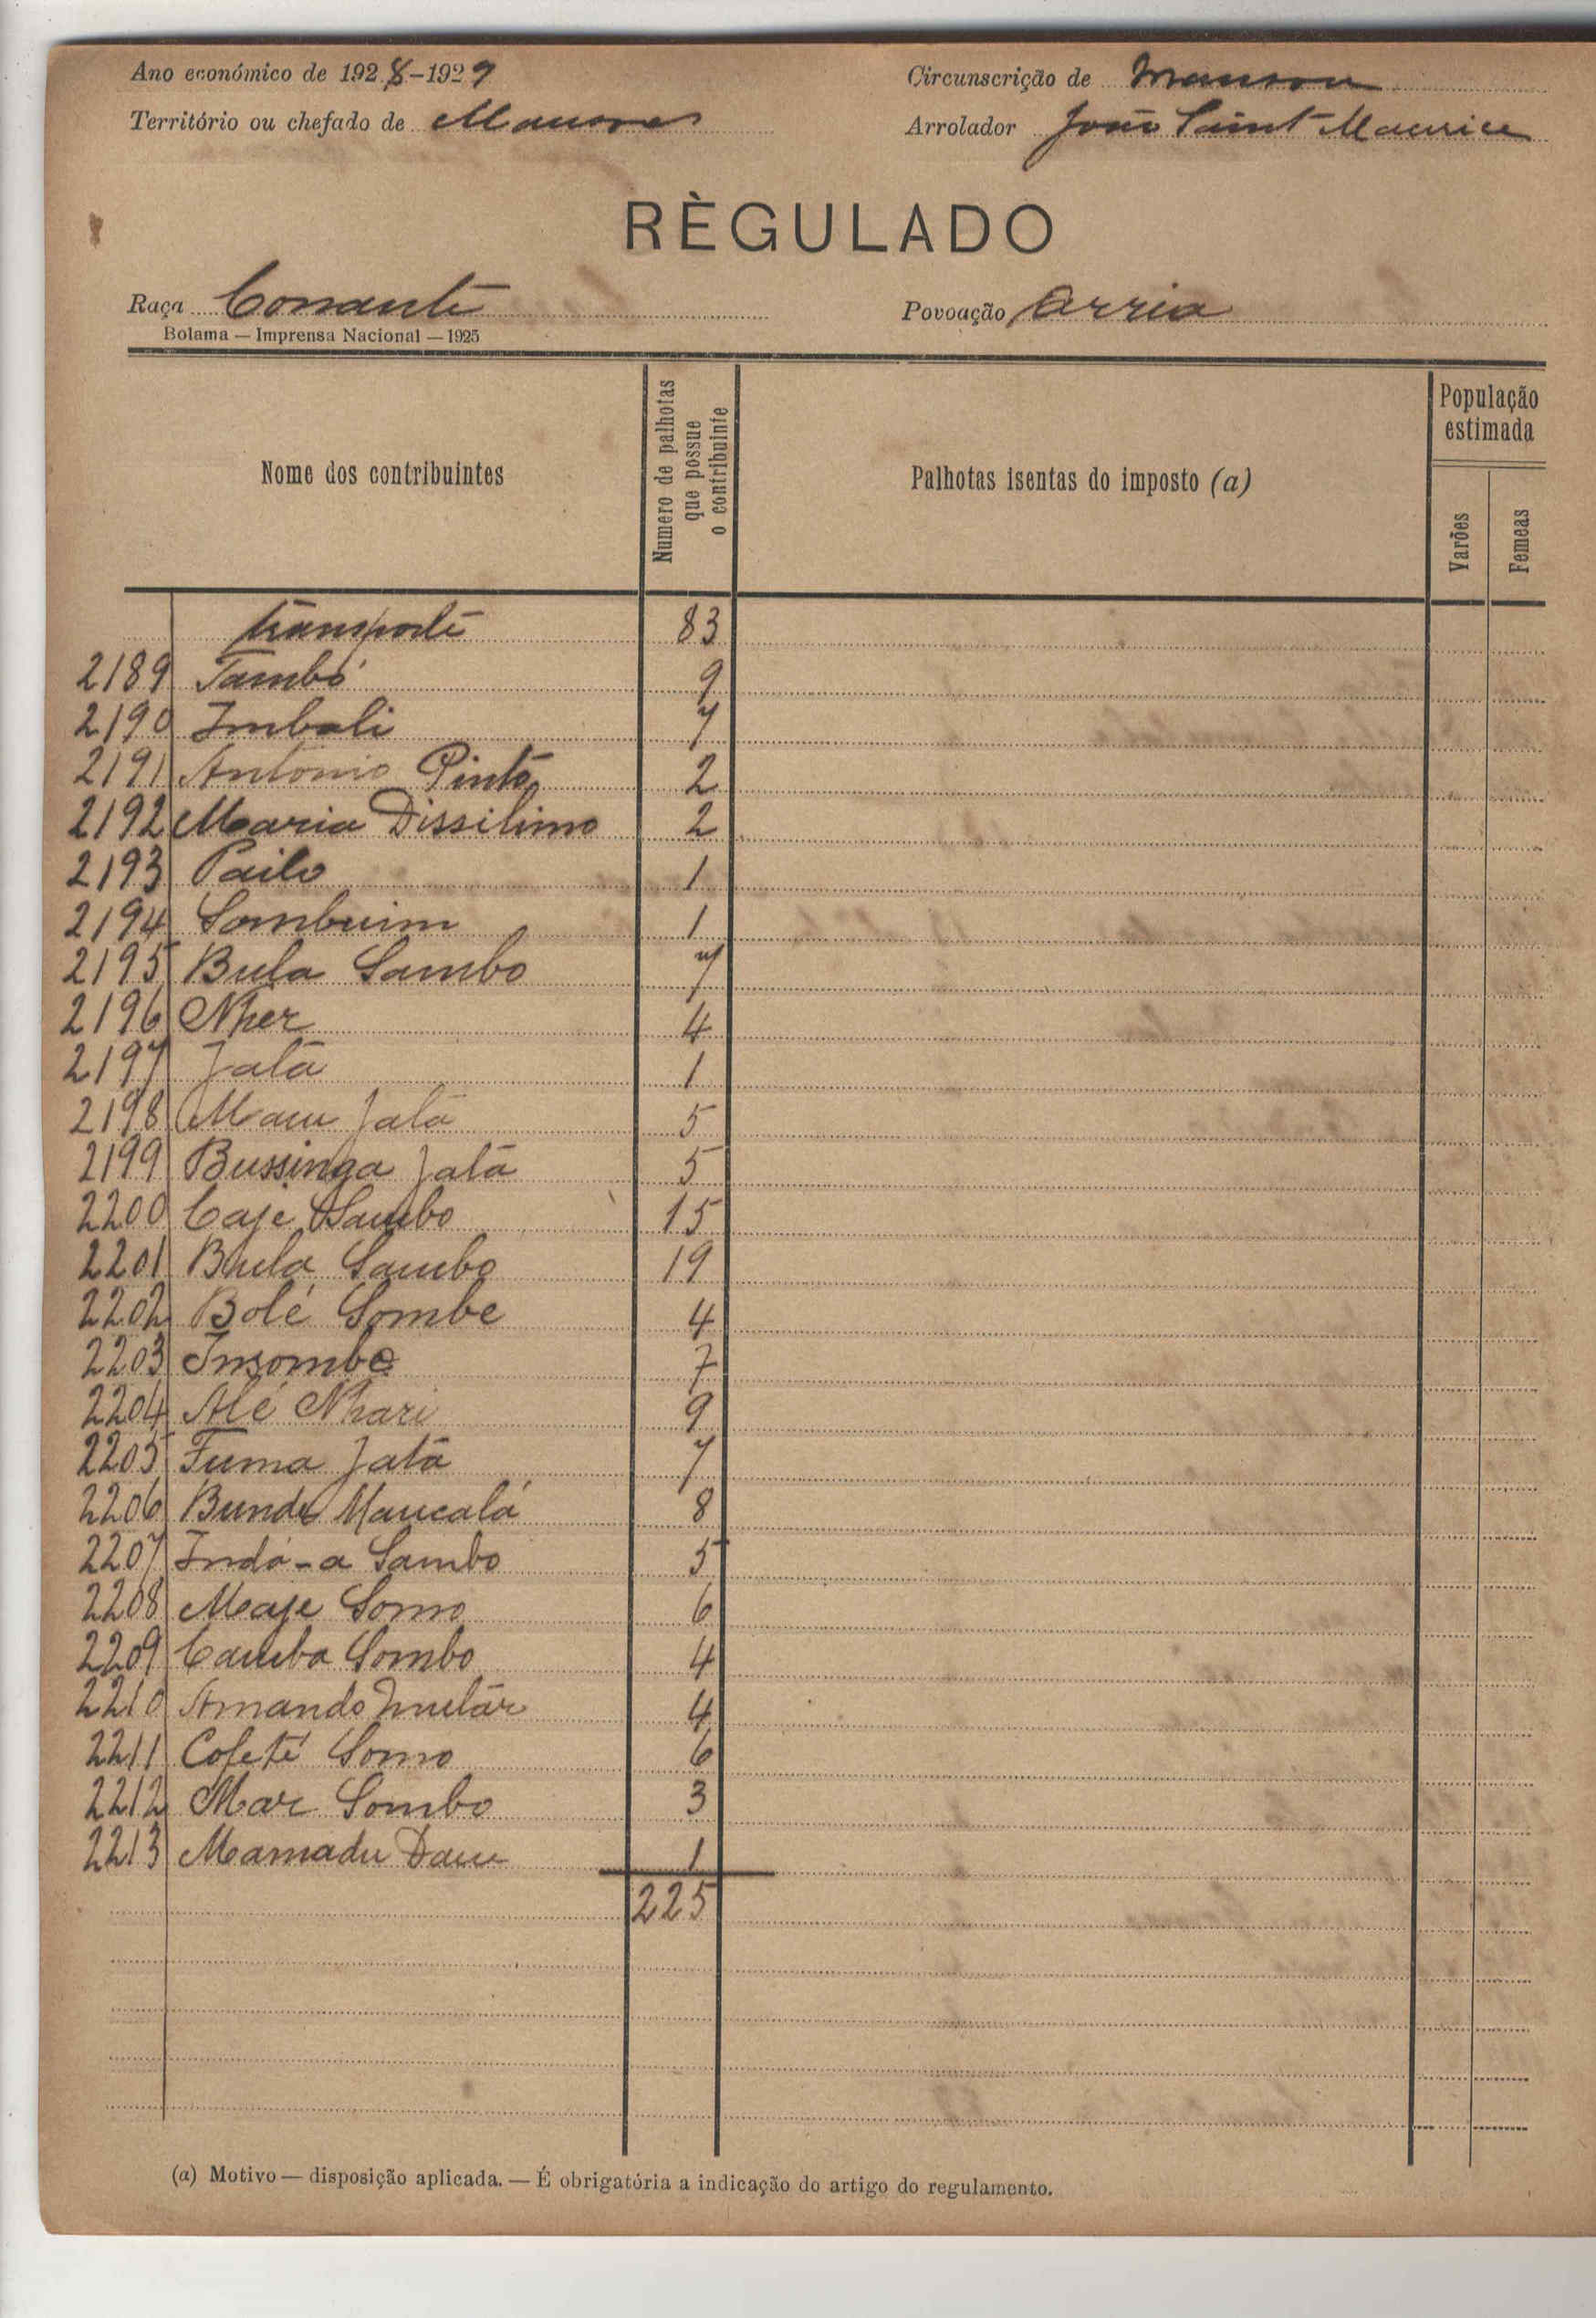 Ano económico de 1928-1929
Circunscrição de Mansoa
Território ou chefado de Mansoa
Arrolador João Saint Maurice
RÈGULADO
Raça
Povoação Arria
Bolama — Imprensa Nacional — 1925
Nome dos contribuintes
Numero de palhotas
que possue
o contribuinte
Palhotas isentas do imposto (a)
População
estimada
Varões
Femeas
Transporte 83
2189 Tambó 9
2190 Imbali 7
2191 Antonio Pinto 2
2192 Maria Dissilimo 2
2193 Pailo 1
2194 Sombuim 1
2195 Bula Sambo 7
2196 Nher 4
2197 Jatá 1
2198 Jatá 5
2199 Bussinga Jatá 5
2200 Caje Sambo 15
2201 Bula Sambo 19
2202 Bolé Sombe 4
2203 Insombe 7
2204 Alé Nhari 9
2205 Fuma Jatá 7
2206 8
2207 Indá-a Sambo 5
2208 Maje Somo 6
2209 Sombo 4
2210 Amando 4
2211 Cofeté Somo 6
2212 Mar Sombo 3
2213 Mamadu 1
225
(a) Motivo — disposição aplicada. — É obrigatória a indicação do artigo do regulamento.